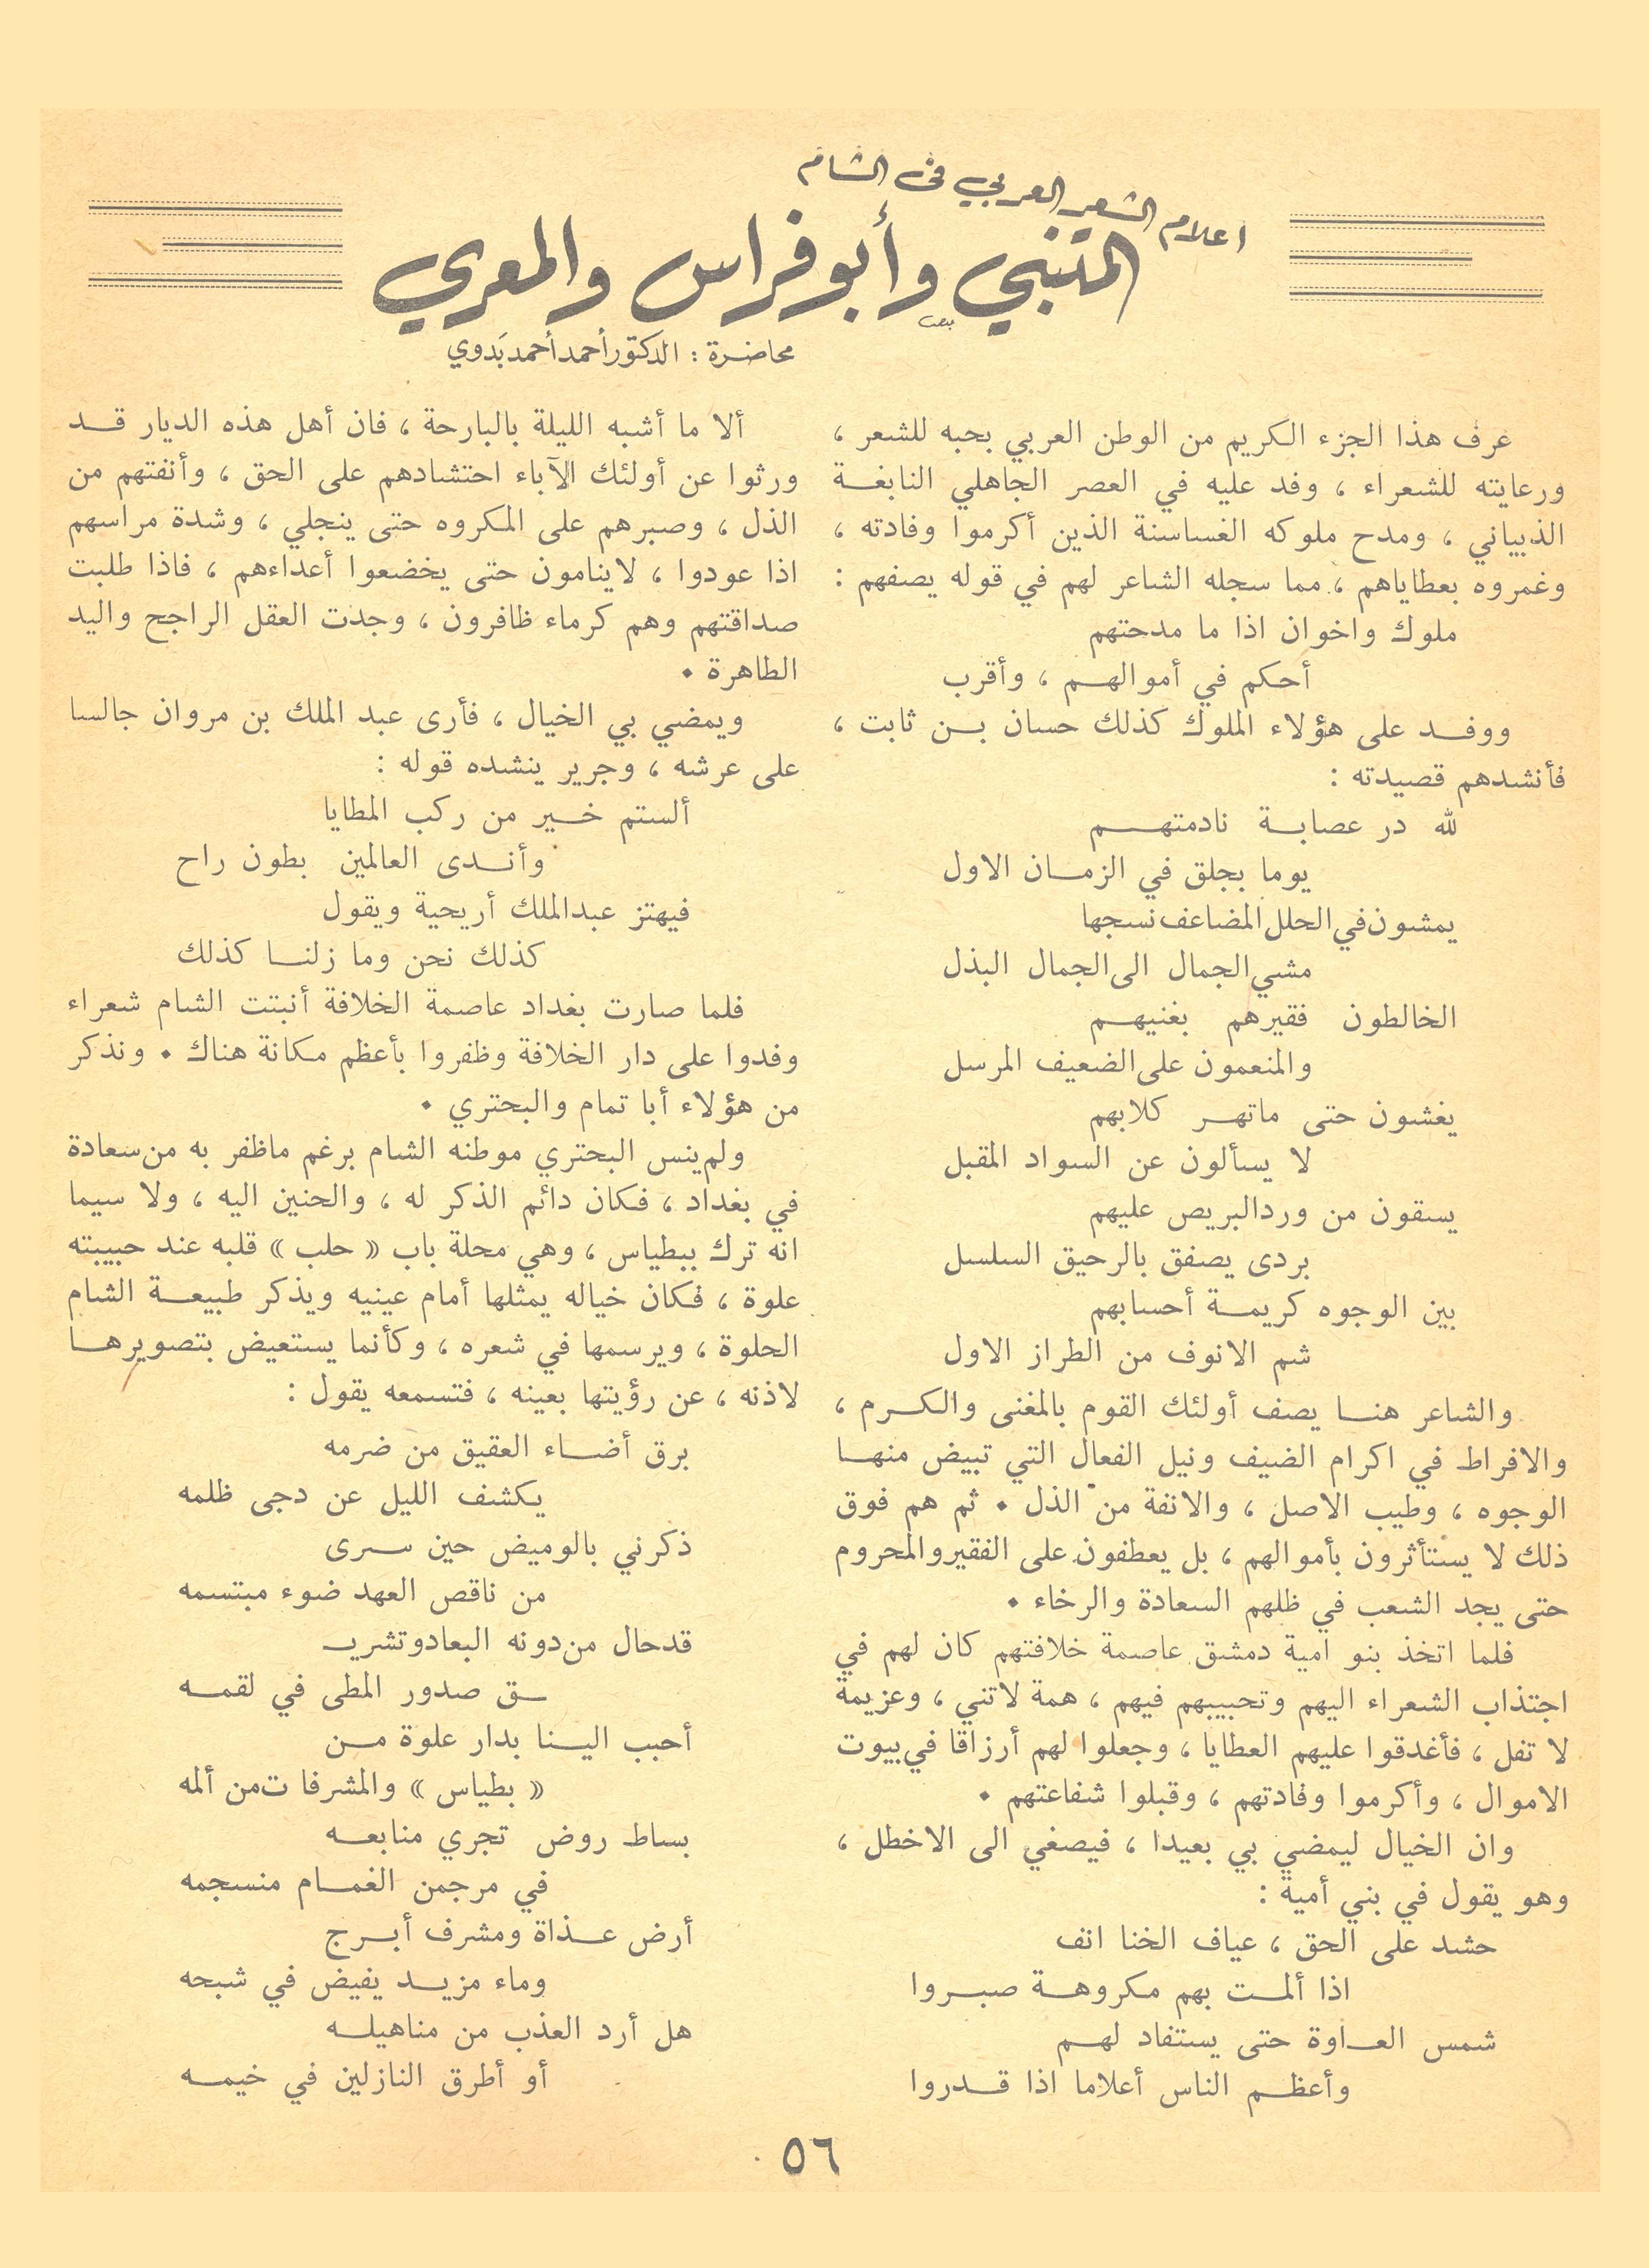 اعلام الشعر العربي في الشام
المتنبي وأبو فراس والمعري
محاضرة : الدكتور أحمد أحمد بَدوي
عرف هذا الجزء الكريم من الوطن العربي بحبه للشعر ،
ورعايته للشعراء ، وفد عليه في العصر الجاهلي النابغة
الذبياني ، ومدح ملوكه الغساسنة الذين أكرموا وفادته ،
وغمروه بعطاياهم ، مما سجله الشاعر لهم في قوله يصفهم :
ملوك واخوان اذا ما مدحتهم
أحكم في أموالهم ، وأقرب
ووفد على هؤلاء الملوك كذلك حسان بن ثابت ،
فأنشدهم قصيدته :
لله در عصابة نادمتهم
يوما بجلق في الزمان الاول
يمشون في الحلل المضاعف نسجها
مشي الجمال الى الجمال البذل
الخالطون فقيرهم بغنيهم
والمنعمون على الضعيف المرسل
يغشون حتى ماتهر كلابهم
لا يسألون عن السواد المقبل
يسقون من ورد البريص عليهم
بردى يصفق بالرحيق السلسل
بين الوجوه كريمة أحسابهم
شم الانوف من الطراز الاول
والشاعر هنا يصف أولئك القوم بالمغنى والكرم ،
والافراط في اكرام الضيف ونيل الفعال التي تبيض منها
الوجوه ، وطيب الاصل ، والانفة من الذل . ثم هم فوق
ذلك لا يستأثرون بأموالهم ، بل يعطفون على الفقير والمحروم
حتى يجد الشعب في ظلهم السعادة والرخاء .
فلما اتخذ بنو امية دمشق عاصمة خلافتهم كان لهم في
اجتذاب الشعراء اليهم وتحبيبهم فيهم ، همة لاتني ، وعزيمة
لا تفل ، فأغدقوا عليهم العطايا ، وجعلوا لهم أرزاقا في بيوت
الاموال ، وأكرموا وفادتهم ، وقبلوا شفاعتهم .
وان الخيال ليمضي بي بعيدا ، فيصغي الى الاخطل ،
وهو يقول في بني أمية :
حشد على الحق ، عياف الخنا انف
اذا ألمت بهم مكروهة صبروا
شمس العـاوة حتى يستفاد لهم
وأعظم الناس أعلاما اذا قدروا
ألا ما أشبه الليلة بالبارحة ، فان أهل هذه الديار قد
ورثوا عن أولئك الآباء احتشادهم على الحق ، وأنفتهم من
الذل ، وصبرهم على المكروه حتى ينجلي ، وشدة مراسهم
اذا عودوا ، لاينامون حتى يخضعوا أعداءهم ، فاذا طلبت
صداقتهم وهم كرماء ظافرون ، وجدت العقل الراجح واليد
الطاهرة .
ويمضي بي الخيال ، فأرى عبد الملك بن مروان جالسا
على عرشه ، وجرير ينشده قوله :
ألستم خير من ركب المطايا
وأندى العالمين بطون راح
فيهتز عبدالملك أريحية ويقول
كذلك نحن وما زلنا كذلك
فلما صارت بغداد عاصمة الخلافة أنبتت الشام شعراء
وفدوا على دار الخلافة وظفروا بأعظم مكانة هناك . ونذكر
من هؤلاء أبا تمام والبحتري .
ولم ينس البحتري موطنه الشام برغم ماظفر به من سعادة
في بغداد ، فكان دائم الذكر له ، والحنين اليه ، ولا سيما
انه ترك ببطياس ، وهي محلة باب « حلب » قلبه عند حبيبته
علوة ، فكان خياله يمثلها أمام عينيه ويذكر طبيعة الشام
الحلوة ، ويرسمها في شعره ، وكأنما يستعيض بتصويرها
لاذنه ، عن رؤيتها بعينه ، فتسمعه يقول :
برق أضاء العقيق من ضرمه
يكشف الليل عن دجى ظلمه
ذكرني بالوميض حين سرى
من ناقص العهد ضوء مبتسمه
قدحال من دونه البعاد وتشريـ
ـق صدور المطى في لقمه
أحبب الينا بدار علوة من
« بطياس » والمشرفا ت من ألمه
بساط روض تجري منابعه
في مرجمن الغمام منسجمه
أرض عذاة ومشرف أبرج
وماء مزيد يفيض في شبحه
هل أرد العذب من مناهيله
أو أطرق النازلين في خيمه
٥٦